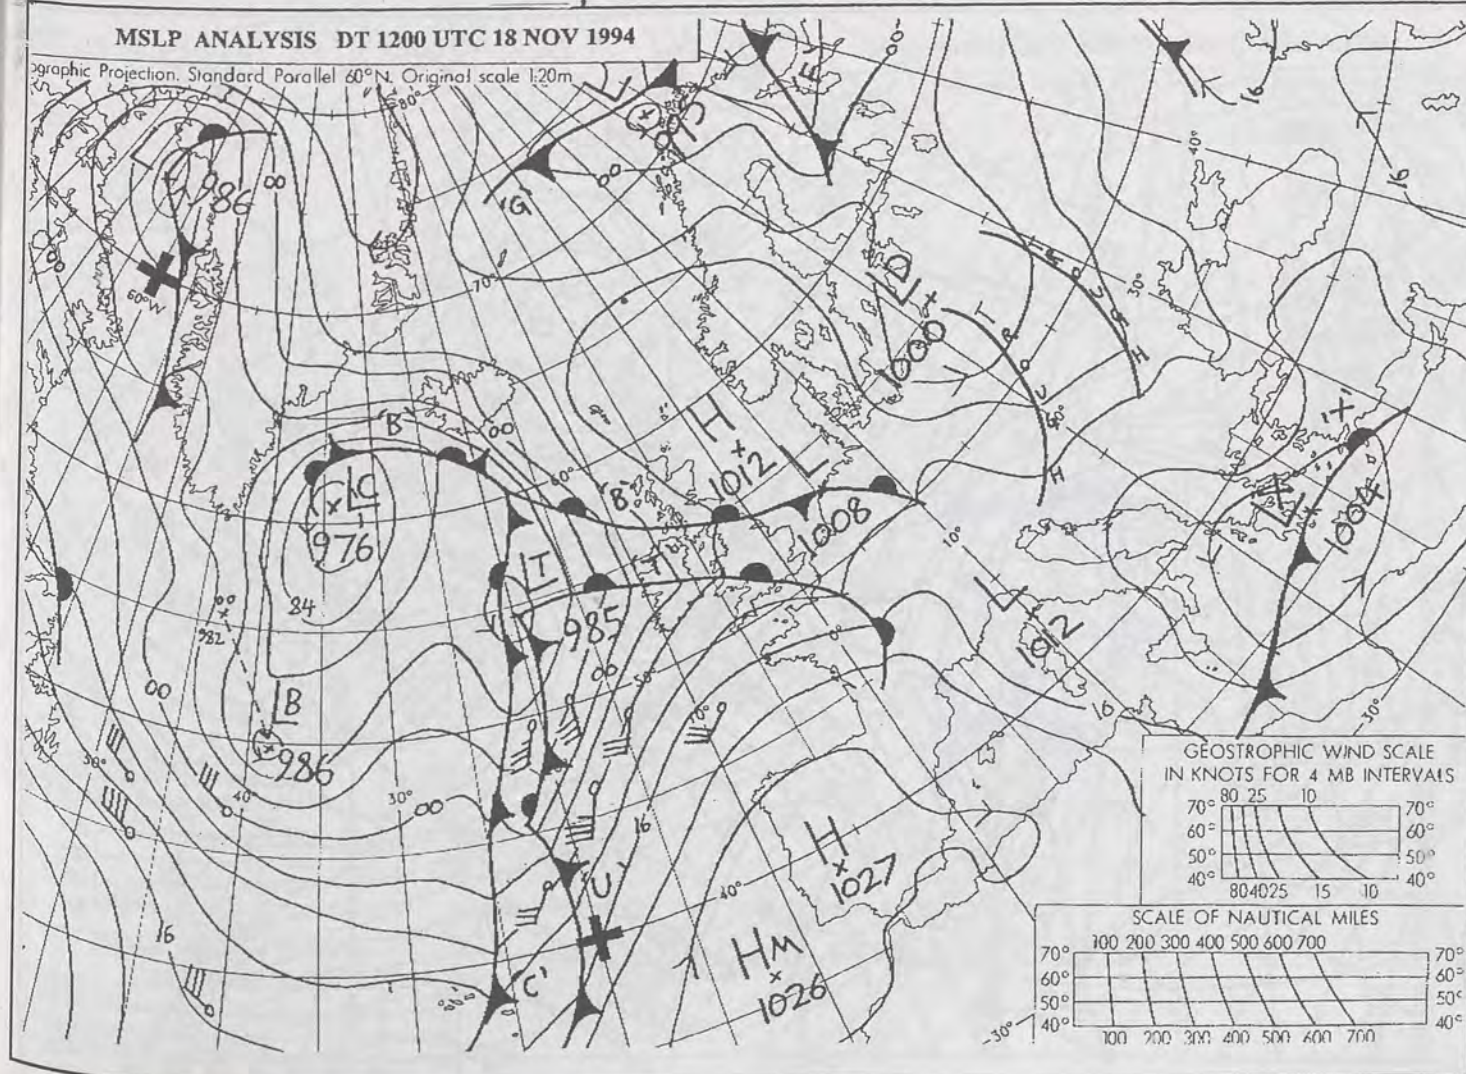 MSLP ANALYSIS DT 1200 UTC 18 NOV 1994
ographic Projection. Standard Parallel 60°N. Original scale 1:20m
80°
L
986
00
60°W
'G'
00
L
'E'
00
16
40°
16
70°
L D
1000
TROUGH
TROUGH
30°
'B'
00
H
1012
L
L C
976
84
60°
'B'
1008
L T
'T'
985
10°
40°
L
1012
'X'
L X
1004
00
982
L B
986
00
50°
40°
30°
00
00
50°
0°
10°
16
30°
16
16
'U'
'C'
H
1027
40°
HM
1026
GEOSTROPHIC WIND SCALE
IN KNOTS FOR 4 MB INTERVALS
80 25 10
70° 70°
60° 60°
50° 50°
40° 40°
80 40 25 15 10
SCALE OF NAUTICAL MILES
100 200 300 400 500 600 700
70° 70°
60° 60°
50° 50°
40° 40°
100 200 300 400 500 600 700
30°